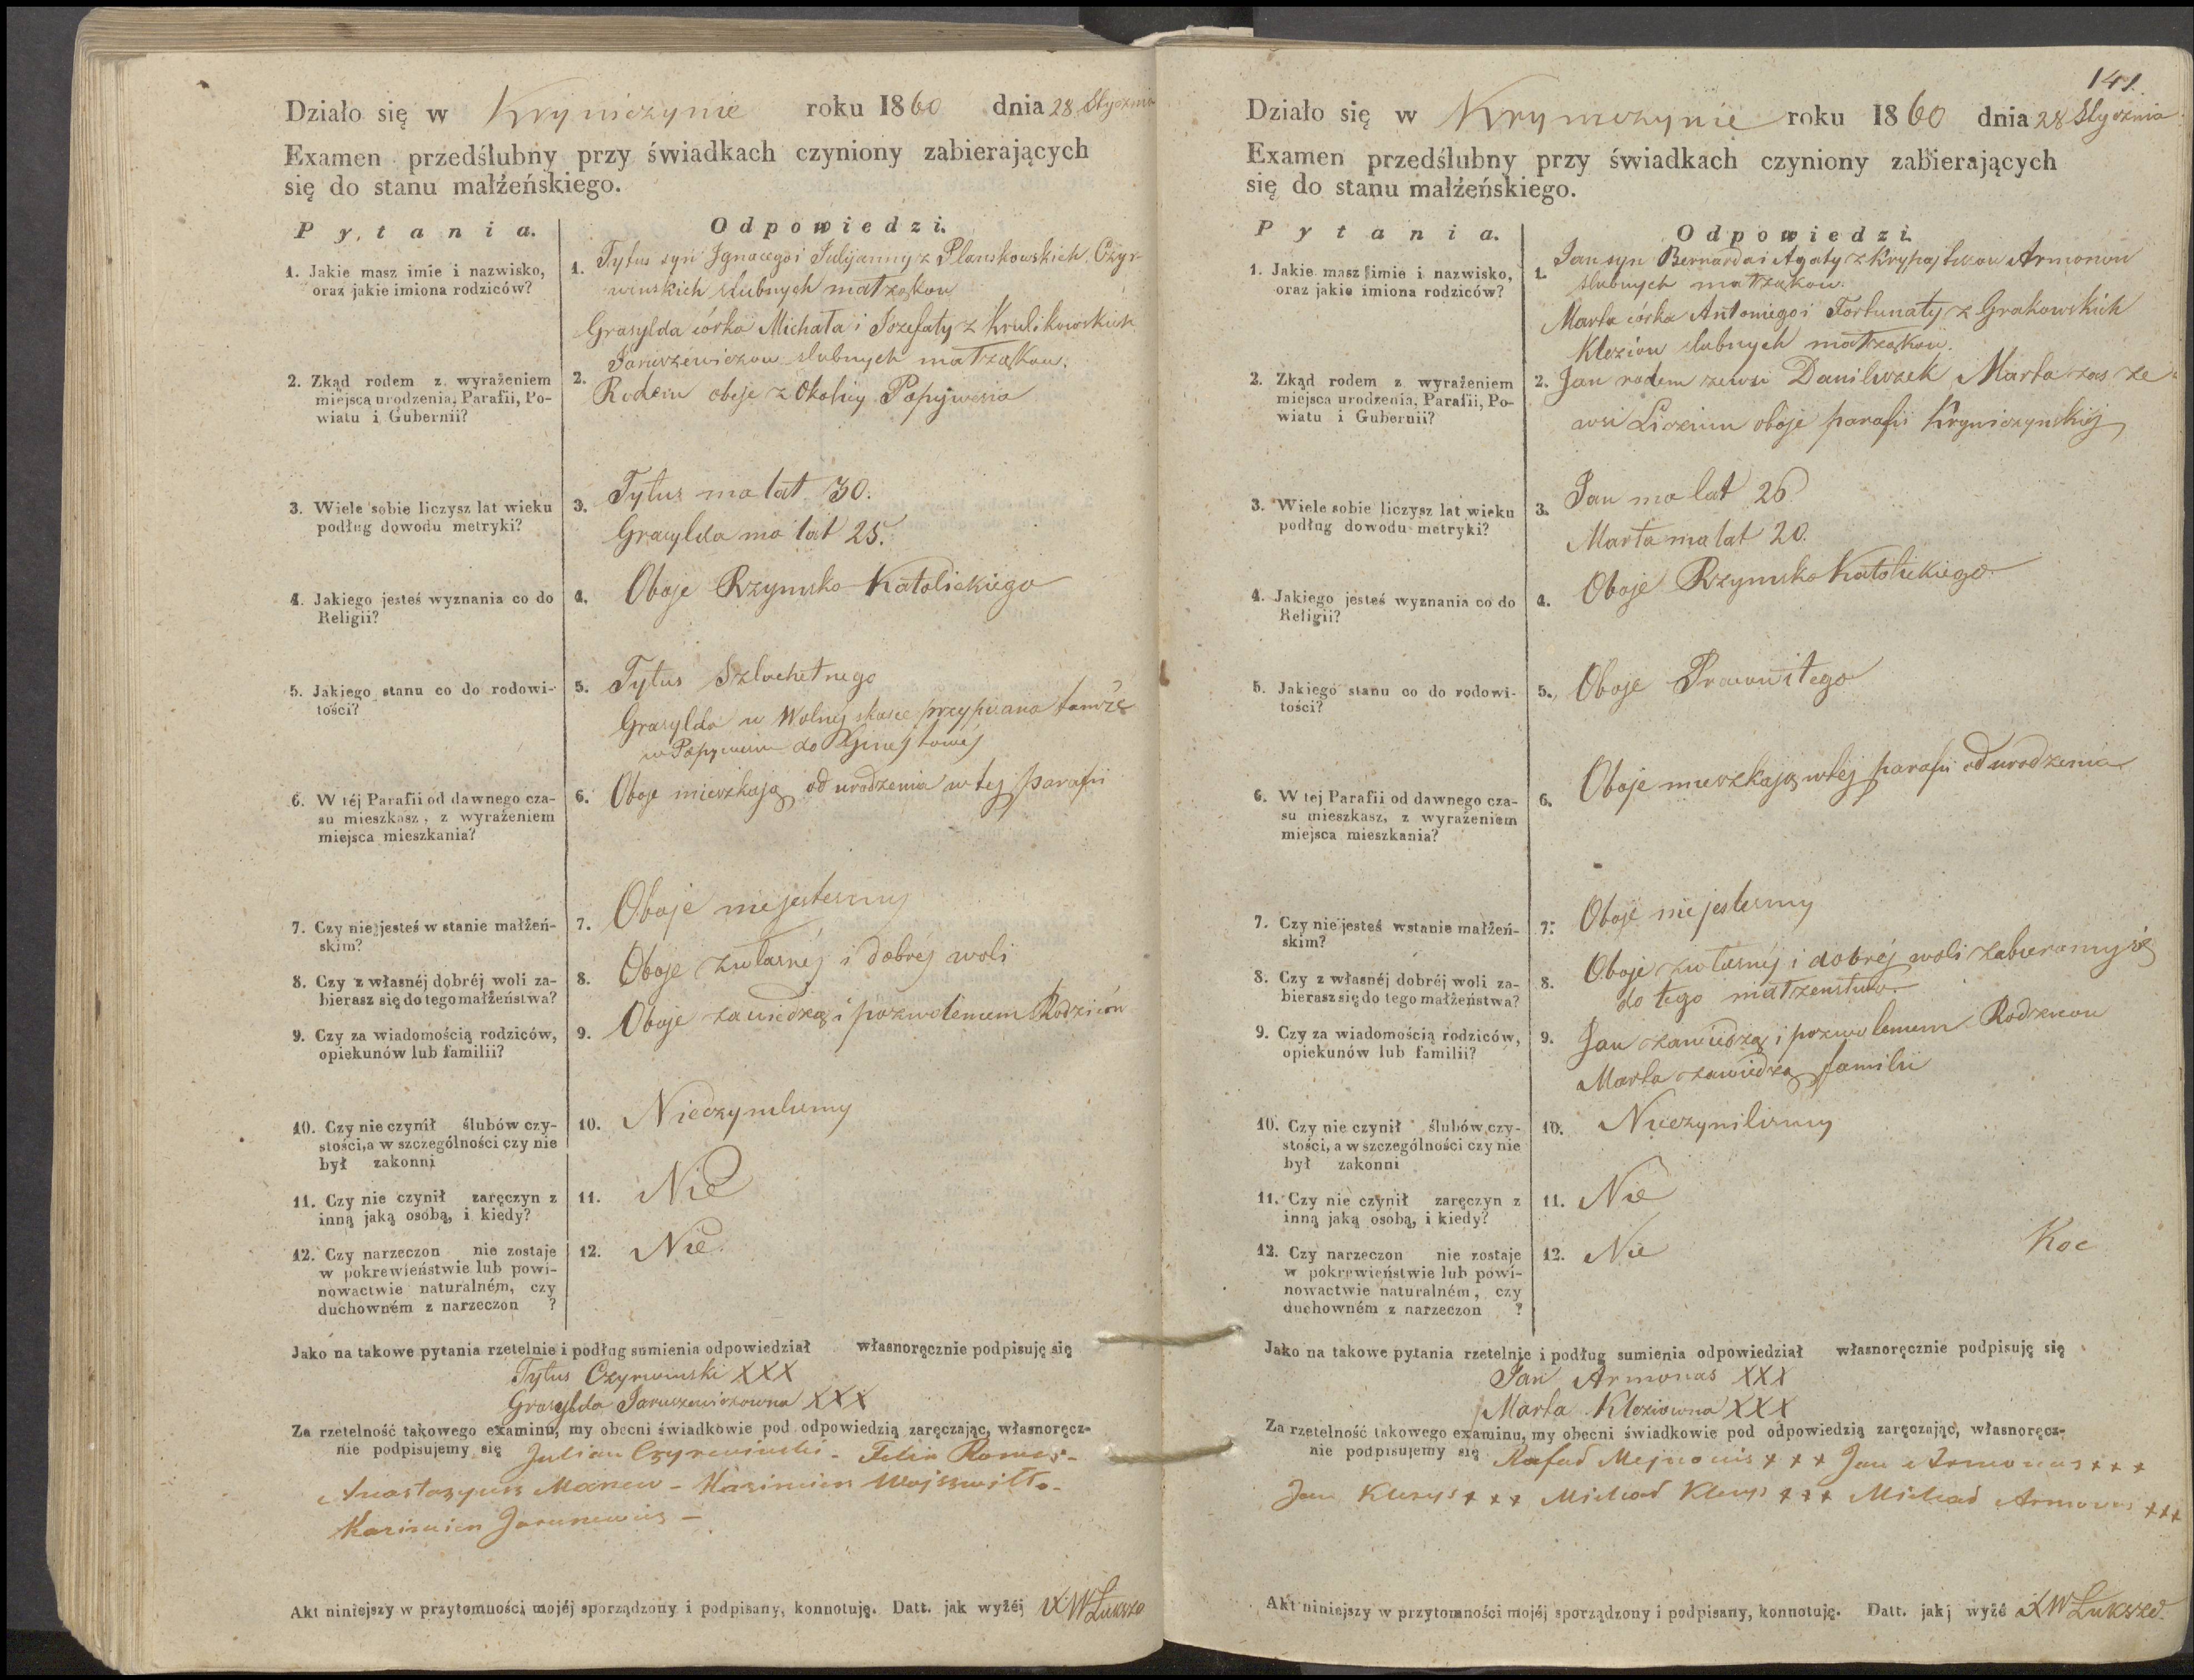 Działo się w Kryniczynie roku 1860 dnia 28 Stycznia
Examen przedślubny przy świadkach czyniony zabierających
się do stanu małżeńskiego.
Pytania.
Odpowiedzi.
1. Jakie masz imie i nazwisko,
oraz jakie imiona rodziców?
1. Tytus syn Ignacego i Julijanny z Planskowskich Czyr-
winskich slubnych małżąkow
Grasylda córka Michała i Jozefaty z Krulikowskich
Jaruszewiczow slubnych małżąkow.
2. Zkąd rodem z wyrażeniem
miejsca urodzenia, Parafii, Po-
wiatu i Gubernii?
2. Rodem oboje z Okolicy Popiwesia
3. Wiele sobie liczysz lat wieku
podług dowodu metryki?
3. Tytus ma lat 30.
Grasylda ma lat 25.
4. Jakiego jesteś wyznania co do
Religii?
4. Oboje Rzymsko Katolickiego
5. Jakiego stanu co do rodowi-
tości?
5. Tytus Szlachetnego
Grasylda w Wolnej skasce przypisana tamże
w do
6. W téj Parafii od dawnego cza-
su mieszkasz, z wyrażeniem
miejsca mieszkania?
6. Oboje mieszkają od urodzenia w tej parafii
7. Czy nie jesteś w stanie małżeń-
skim?
7. Oboje nie jestesmy
8. Czy z własnéj dobréj woli za-
bierasz się do tego małżeństwa?
8. Oboje zwłasnéj i dobréj woli
9. Czy za wiadomością rodziców,
opiekunów lub familii?
9. Oboje zawiedzą i pozwolemem Rodziców
10. Czy nie czynił ślubów czy-
stości, a w szczególności czy nie
był zakonni
10. Nieczynilismy
11. Czy nie czynił zaręczyn z
inną jaką osobą, i kiedy?
11. Nie
12. Czy narzeczon nie zostaje
w pokrewieństwie lub powi-
nowactwie naturalném, czy
duchowném z narzeczon ?
12. Nie
Jako na takowe pytania rzetelnie i podług sumienia odpowiedział własnoręcznie podpisuję się
Tytus Czyrwinski XXX
Grasylda Jaruszewiczowna XXX
Za rzetelność takowego examinu, my obecni świadkowie pod odpowiedzią zaręczając, własnoręcz-
nie podpisujemy się Julian Czyrewinski - Felix Romer -
Anastazyusz - Kazimierz Wojszwiłło -
Kazimierz Jarunewicz -
Akt niniejszy w przytomności mojéj sporządzony i podpisany, konnotuję. Datt. jak wyżéj XW Łukszo
141.
Działo się w Kryniczynie roku 1860 dnia 28 Stycznia
Examen przedślubny przy świadkach czyniony zabierających
się do stanu małżeńskiego.
Pytania.
Odpowiedzi.
1. Jakie masz imie i nazwisko,
oraz jakie imiona rodziców?
1. Jan syn Bernarda i Agaty z Armonow
slubnych małżąkow.
Marta córka Antoniego i Fortunaty z Grakowskich
Kleziow slubnych małżąkow.
2. Zkąd rodem z wyrażeniem
miejsca urodzenia, Parafii, Po-
wiatu i Gubernii?
2. Jan rodem zewsi Daniliszek Marta zas ze
wsi oboje parafii Kryniczynskiéj
3. Wiele sobie liczysz lat wieku
podług dowodu metryki?
3. Jan ma lat 26
Marta ma lat 20.
4. Jakiego jesteś wyznania co do
Religii?
4. Oboje Rzymsko Katolickiego
5. Jakiego stanu co do rodowi-
tości?
5. Oboje Pracowitego
6. W tej Parafii od dawnego cza-
su mieszkasz, z wyrażeniem
miejsca mieszkania?
6. Oboje mieszkają w téj parafii od urodzenia
7. Czy nie jesteś wstanie małżeń-
skim?
7. Oboje nie jestesmy
8. Czy z własnéj dobréj woli za-
bierasz się do tego małżeństwa?
8. Oboje zwłasnéj i dobréj woli zabieramy się
do tego małżenstwa
9. Czy za wiadomością rodziców,
opiekunów lub familii?
9. Jan zawiedzą i pozwolemem Rodzicow
Marta zawiedzą familii
10. Czy nie czynił ślubów czy-
stości, a w szczególności czy nie
był zakonni
10. Nieczynilismy
11. Czy nie czynił zaręczyn z
inną jaką osobą, i kiedy?
11. Nie
12. Czy narzeczon nie zostaje
w pokrewieństwie lub powi-
nowactwie naturalném, czy
duchowném z narzeczon ?
12. Nie Koc
Jako na takowe pytania rzetelnie i podług sumienia odpowiedział własnoręcznie podpisuję się
Jan Armonas XXX
Marta Kleziowna XXX
Za rzetelność takowego examinu, my obecni świadkowie pod odpowiedzią zaręczając, własnoręcz-
nie podpisujemy się Rafał Mejnowis xxx Jan Armonas xxx
Jan Klezys xxx Michał Klezys xxx Michał Armonas xxx
Akt niniejszy w przytomności mojéj sporządzony i podpisany, konnotuję. Datt. jakj wyżé XW Łukszo